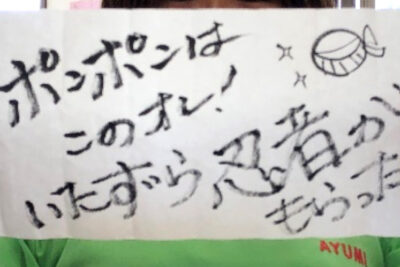 ポンポンは
このオレ!
いたずら忍者が
もらった
AYUMI